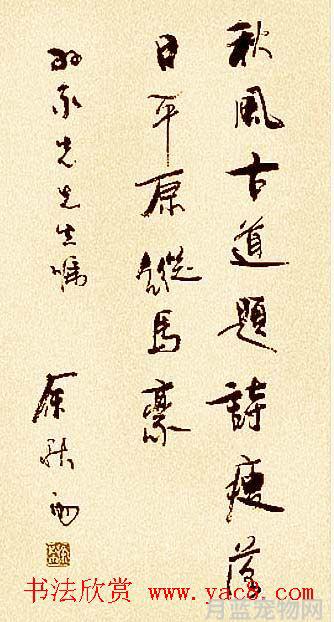 秋風古道題詩瘦落
日平原縱馬豪
先生嘱
余秋雨
书法欣赏 www.yac8.com
月蓝宠物网